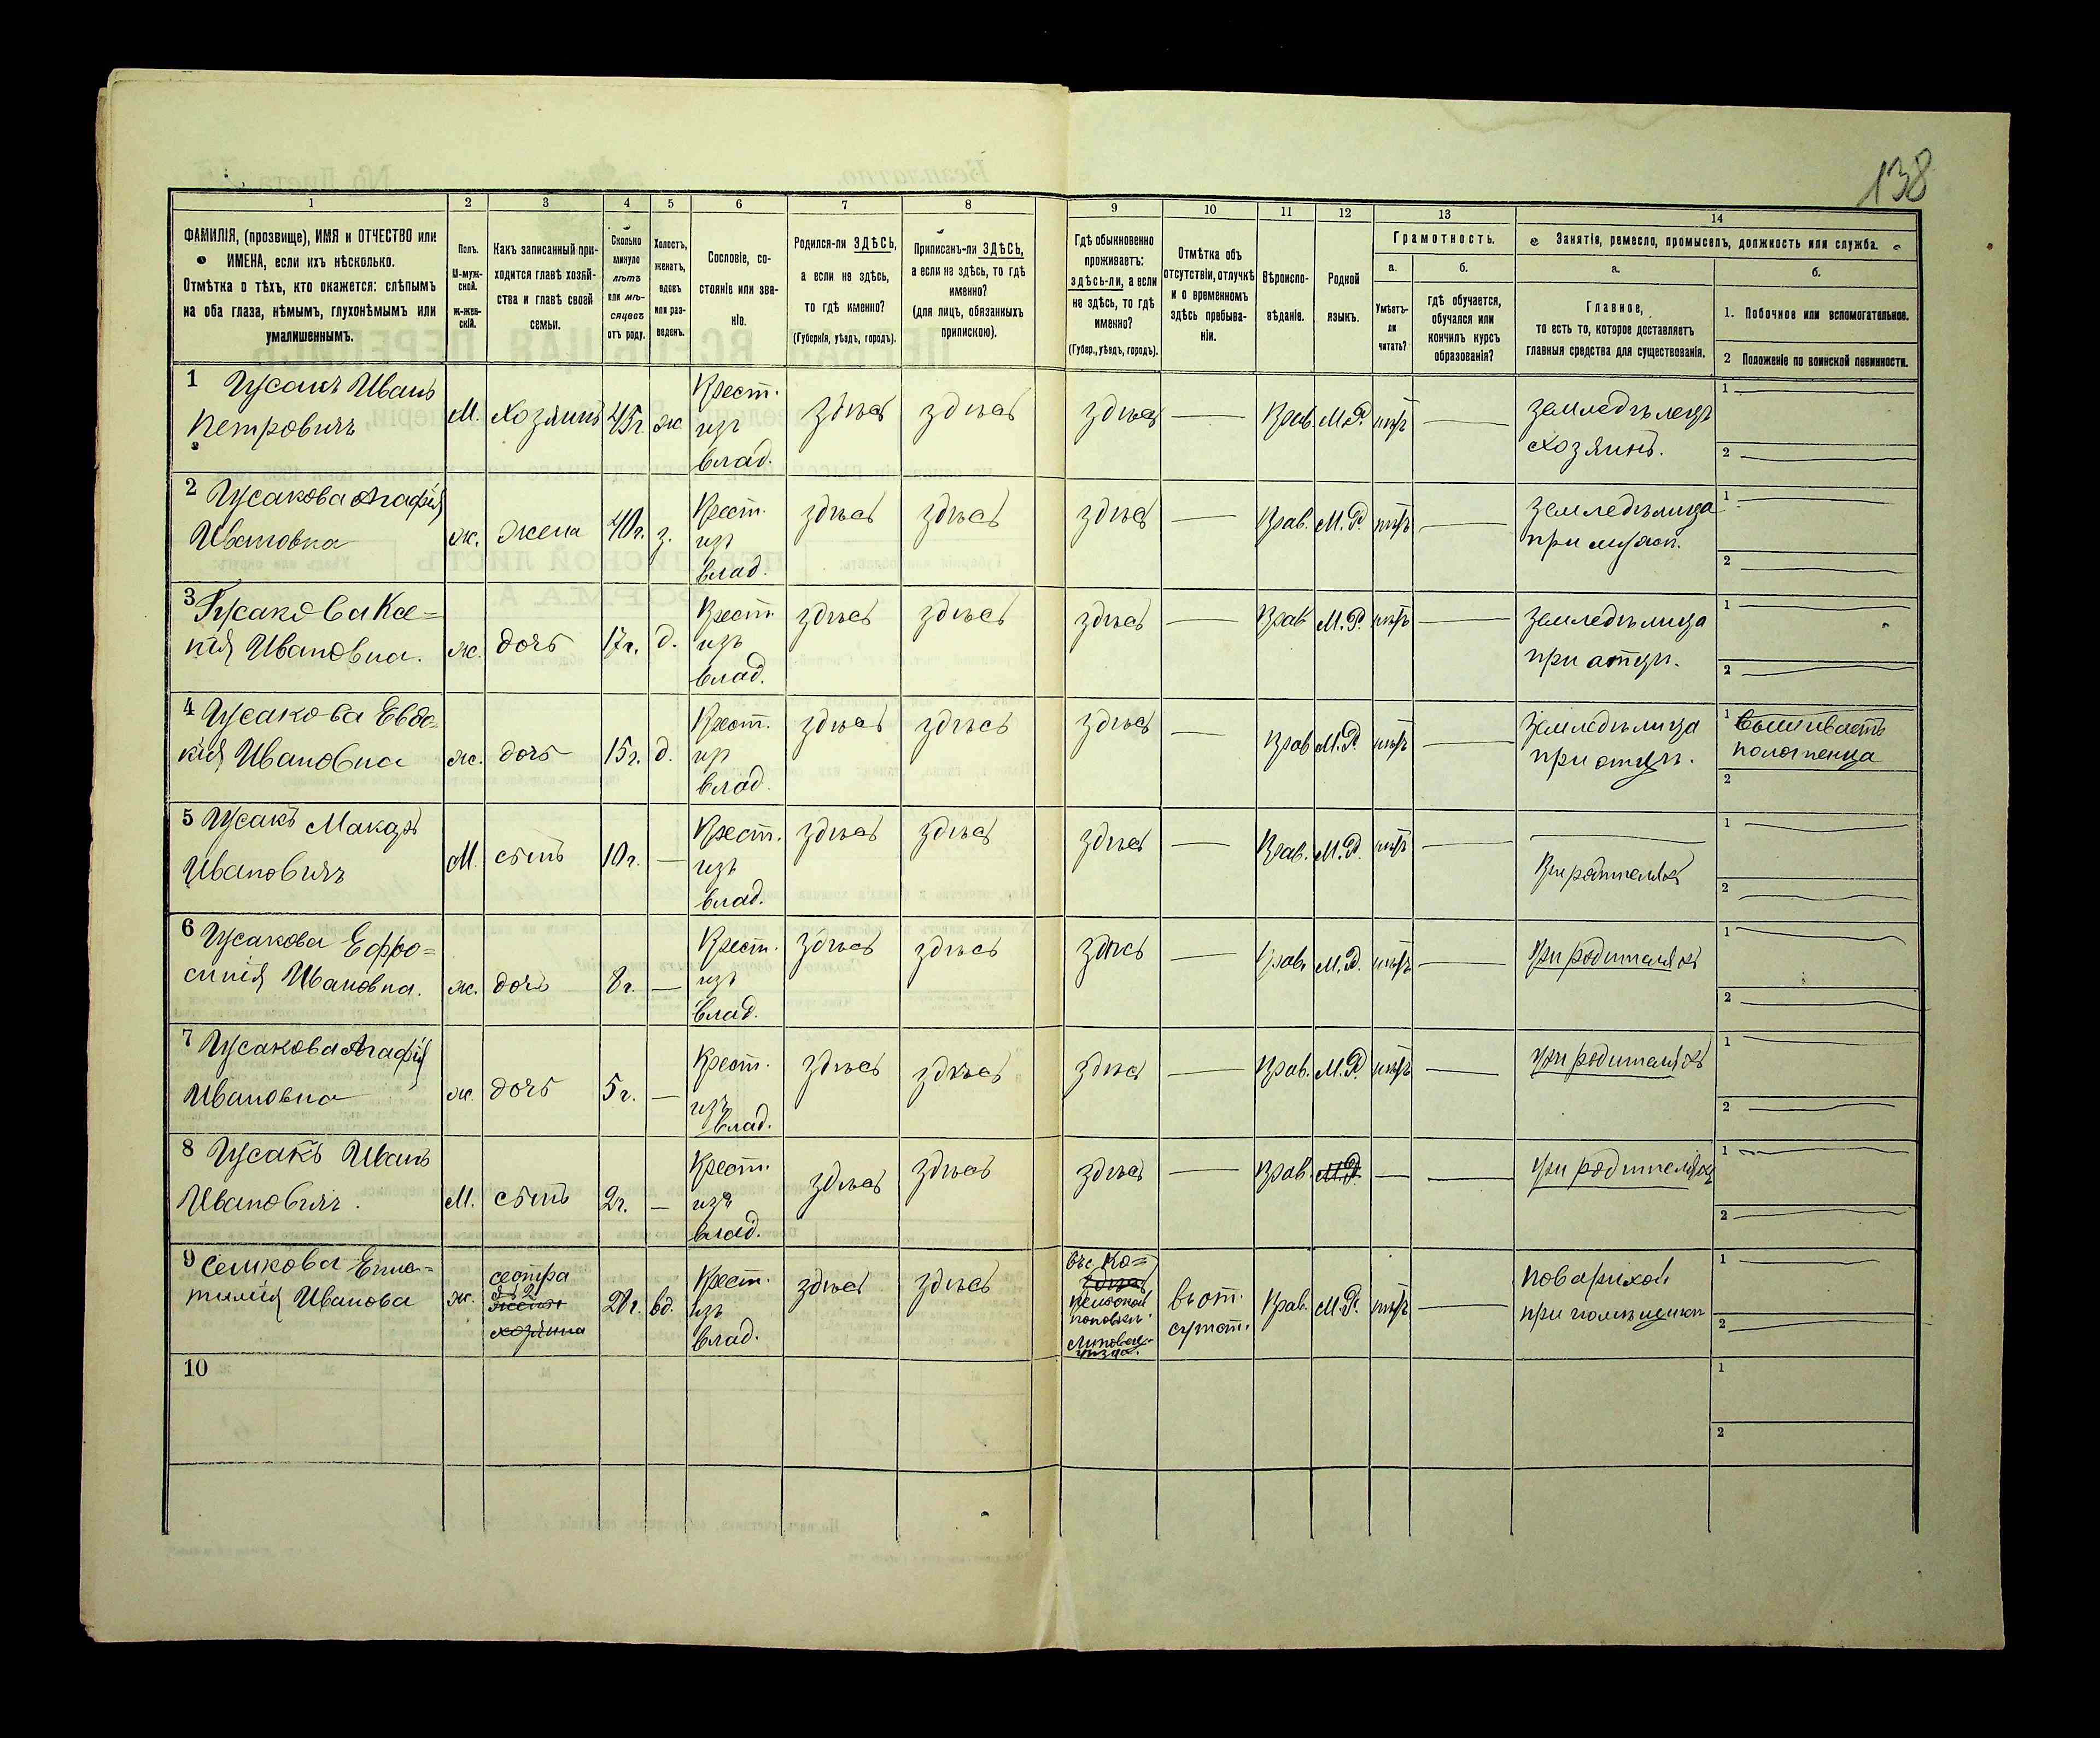 138
1
2
3
4
5
6
7
8
9
10
11
12
13
14
ФАМИЛІЯ, (прозвище), ИМЯ и ОТЧЕСТВО или
ИМЕНА, если ихъ нѣсколько.
Отмѣтка о тѣхъ, кто окажется: слѣпымъ
на оба глаза, нѣмымъ, глухонѣмымъ или
умалишеннымъ.
Полъ.
М-муж-
ской.
ж-жен-
скій.
Какъ записанный при-
ходится главѣ хозяй-
ства и главѣ своей
семьи.
Сколько
минуло
лѣтъ
или мѣ-
сяцевъ
отъ роду.
Холостъ,
женатъ,
вдовъ
или раз-
веденъ.
Сословіе, со-
стояніе или зва-
ніе.
Родился-ли ЗДѢСЬ,
а если не здѣсь,
то гдѣ именно?
(Губернія, уѣздъ, городъ).
Приписанъ-ли ЗДѢСЬ,
а если не здѣсь, то гдѣ
именно?
(для лицъ, обязанныхъ
припискою).
Гдѣ обыкновенно
проживаетъ:
здѣсь-ли, а если
не здѣсь, то гдѣ
именно?
(Губер., уѣздъ, городъ).
Отмѣтка объ
отсутствіи, отлучкѣ
и о временномъ
здѣсь пребыва-
ніи.
Вѣроиспо-
вѣданіе.
Родной
языкъ.
Грамотность.
а.
Умѣетъ-
ли
читать?
б.
гдѣ обучается,
обучался или
кончилъ курсъ
образованія?
Занятіе, ремесло, промыселъ, должность или служба.
а.
Главное,
то есть то, которое доставляетъ
главныя средства для существованія.
б.
1. Побочное или вспомогательное.
2 Положеніе по воинской повинности.
1 Гусакъ Иванъ
Петровичъ
М.
хозяинъ
45г
ж
Крест.
изъ
влад.
здѣсь
здѣсь
здѣсь
Прав.
М.Р.
нѣтъ
земледѣлецъ
хозяинъ.
1
2
2 Гусакова Агафія
Ивановна
ж.
жена
40г.
з.
Крест.
изъ
влад.
здѣсь
здѣсь
здѣсь
Прав.
М.Р.
нѣтъ
земледѣлица
при
1
2
3 Гусакова Ксе=
нія Ивановна.
ж.
дочь
17г.
д.
Крест.
изъ
влад.
здѣсь
здѣсь
здѣсь
Прав
М.Р.
нѣтъ
земледѣлица
при отцѣ.
1
2
4 Гусакова Евдо-
кія Ивановна
ж.
дочь
15г.
д.
Крест.
изъ
влад.
здѣсь
здѣсь
здѣсь
Прав
М.Р.
нѣтъ
Земледѣлица
при отцѣ.
1 Вышиваетъ
полотенца
2
5 Гусакъ Макаръ
Ивановичъ
М.
сынъ
10г.
Крест.
изъ
влад.
здѣсь
здѣсь
здѣсь
Прав.
М.Р.
нѣтъ
При родителяхъ
1
2
6 Гусакова Ефро=
синія Ивановна.
ж.
дочь
8г.
Крест.
изъ
влад.
здѣсь
здѣсь
здѣсь
Прав.
М.Р.
нѣтъ
при родителяхъ
1
2
7 Гусакова Агафія
Ивановна
ж.
дочь
5г.
Крест.
изъ
влад.
здѣсь
здѣсь
здѣсь
Прав.
М.Р.
нѣтъ
при родителяхъ
1
2
8 Гусакъ Иванъ
Ивановичъ.
М.
сынъ
2г.
Крест.
изъ
влад.
здѣсь
здѣсь
здѣсь
Прав.
М.Р.
при родителяхъ
1
2
9 Семкова
Иванова
ж.
сестра
жены
хозяина
вд.
Крест.
изъ
влад.
здѣсь
здѣсь
здѣсь
уѣзда.
въ от-
сутст.
Прав.
М.Р.
нѣтъ
поварихой
при
1
2
10
1
2